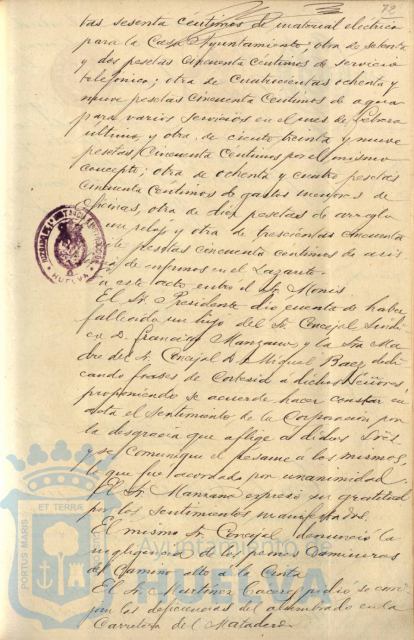 72
tas sesenta centimos de material eléctrico
para la Casa Ayuntamiento; otra de setenta
y dos pesetas cincuenta centimos de servicio
telefonico; otra de cuatrocientas ochenta y
nueve pesetas cincuenta centimos de agua
para varios servicios en el mes de Febrero
ultimo, y otra de ciento treinta y nueve
pesetas cincuenta centimos por el mismo
concepto; otra de ochenta y cuatro pesetas
cincuenta centimos de gastos menores de
oficinas, otra de diez pesetas de arreglo
un reloj y otra de trescientas cincuenta
te pesetas cincuenta centimos de
de enfermos en el Lazareto.
a este acto entró el Sr. Monis
El Sr. Presidente dio cuenta de haber
fallecido un hijo del Sr. Concejal Sindi
co D. Francisco Manzano y la Sra. Ma
dre del Sr. Concejal D. Miguel Baez dedi
cando frases de cortesia a dichos señores
proponiendo se acuerde hacer constar en
acta el sentimiento de la Corporación por
la desgracia que aflige a dichos Sres
y se comunique el pesame a los mismos,
lo que fue acordado por unanimidad.
El Sr. Manzano expresó su gratitud
por los sentimientos manifestados.
El mismo Sr. Concejal denunció la
negligencia de los peones camineros
del camino alto a la Cinta
El Sr. Martinez Cacera pidió se corri
jan las deficiencias del alumbrado en la
Carretera del Matadero.
HUELVA
PORTUS MARIS ET TERRÆ
Ayuntamiento
HUELVA